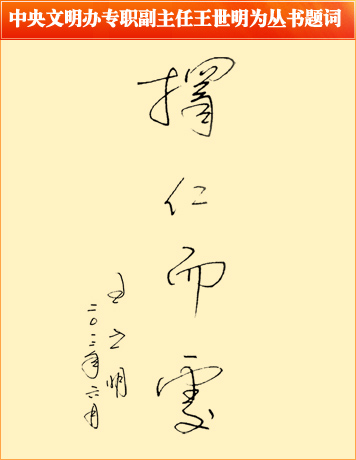 中央文明办专职副主任王世明为丛书题词
擇仁而處
王世明
二〇一二年六月